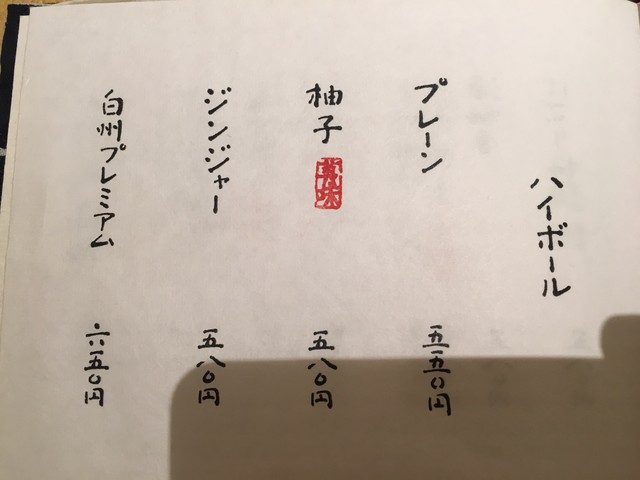 ハイボール
プレーン 五五〇円
柚子 五八〇円
ジンジャー 五八〇円
白州プレミアム 六五〇円